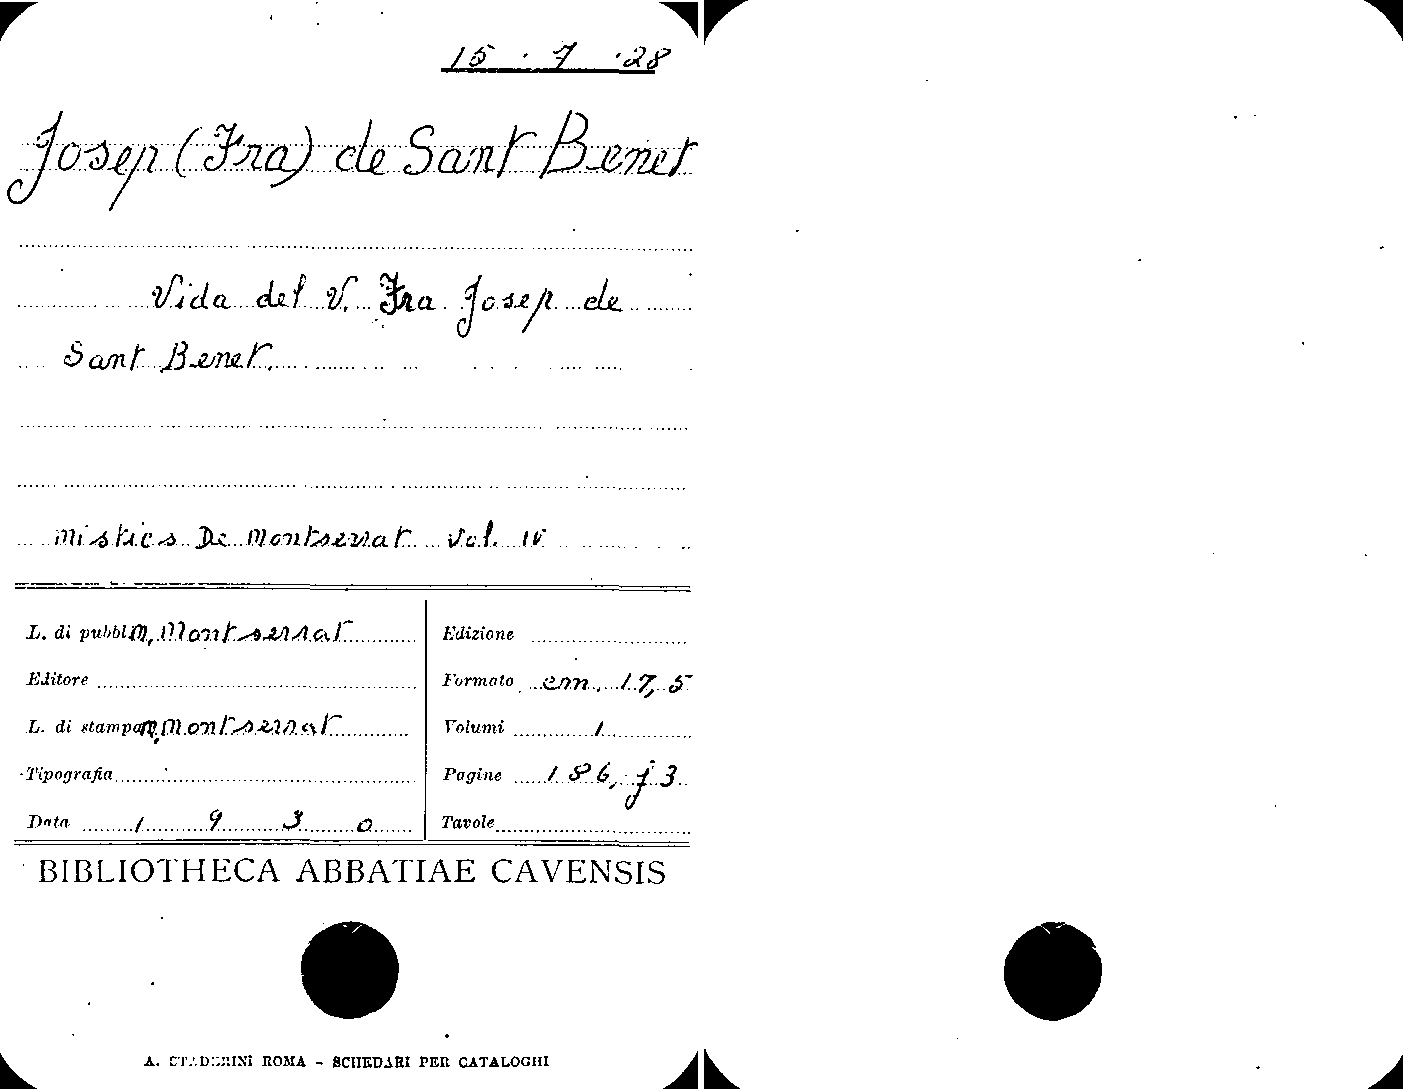 15 . 7 . 28
Josep (Fra) de Sant Benet
Vida del V. Fra Josep de
Sant Benet.
Mistics De Montserrat Vol. IV
L. di pubbl. M. Montserrat
Edizione
Editore
Formato cm. 17,5
L. di stampa M. Montserrat
Volumi 1
Tipografia
Pagine 186, j 3
Data 1930
Tavole
BIBLIOTHECA ABBATIAE CAVENSIS
A. STADERINI ROMA - SCHEDARI PER CATALOGHI